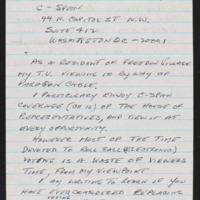 C-SPAN
44 N. CAPITOL ST N.W.
SUITE 412
WASHINGTON D.C. - 20001
AS A RESIDENT OF FREEDOM VILLAGE
MY T.V. VIEWING IS BY WAY OF
PARAGON CABLE.
I PARTICULARLY ENJOY C-SPAN
COVERAGE OF THE HOUSE OF
REPRESENTATIVES, AND VIEW IT AT
EVERY OPPORTUNITY.
HOWEVER MOST OF THE TIME
DEVOTED TO ROLL CALL (ELECTRONIC)
VOTING IS A WASTE OF VIEWERS
TIME, FROM MY VIEWPOINT
I AM WRITING TO LEARN IF YOU
HAVE EVER CONSIDERED REPLACING